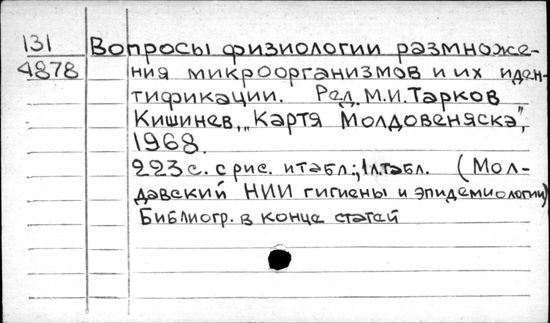 131
4878
Вопросы физиологии размноже-
ния микроорганизмов и их иден-
тификации. Ред. М.И. Тарков
Кишинев, „Картя Молдовеняскэ",
1968.
223 с. с рис. и табл.; 1 л. табл. (Мол-
давский НИИ гигиены и эпидемиологии)
Библиогр. в конце статей